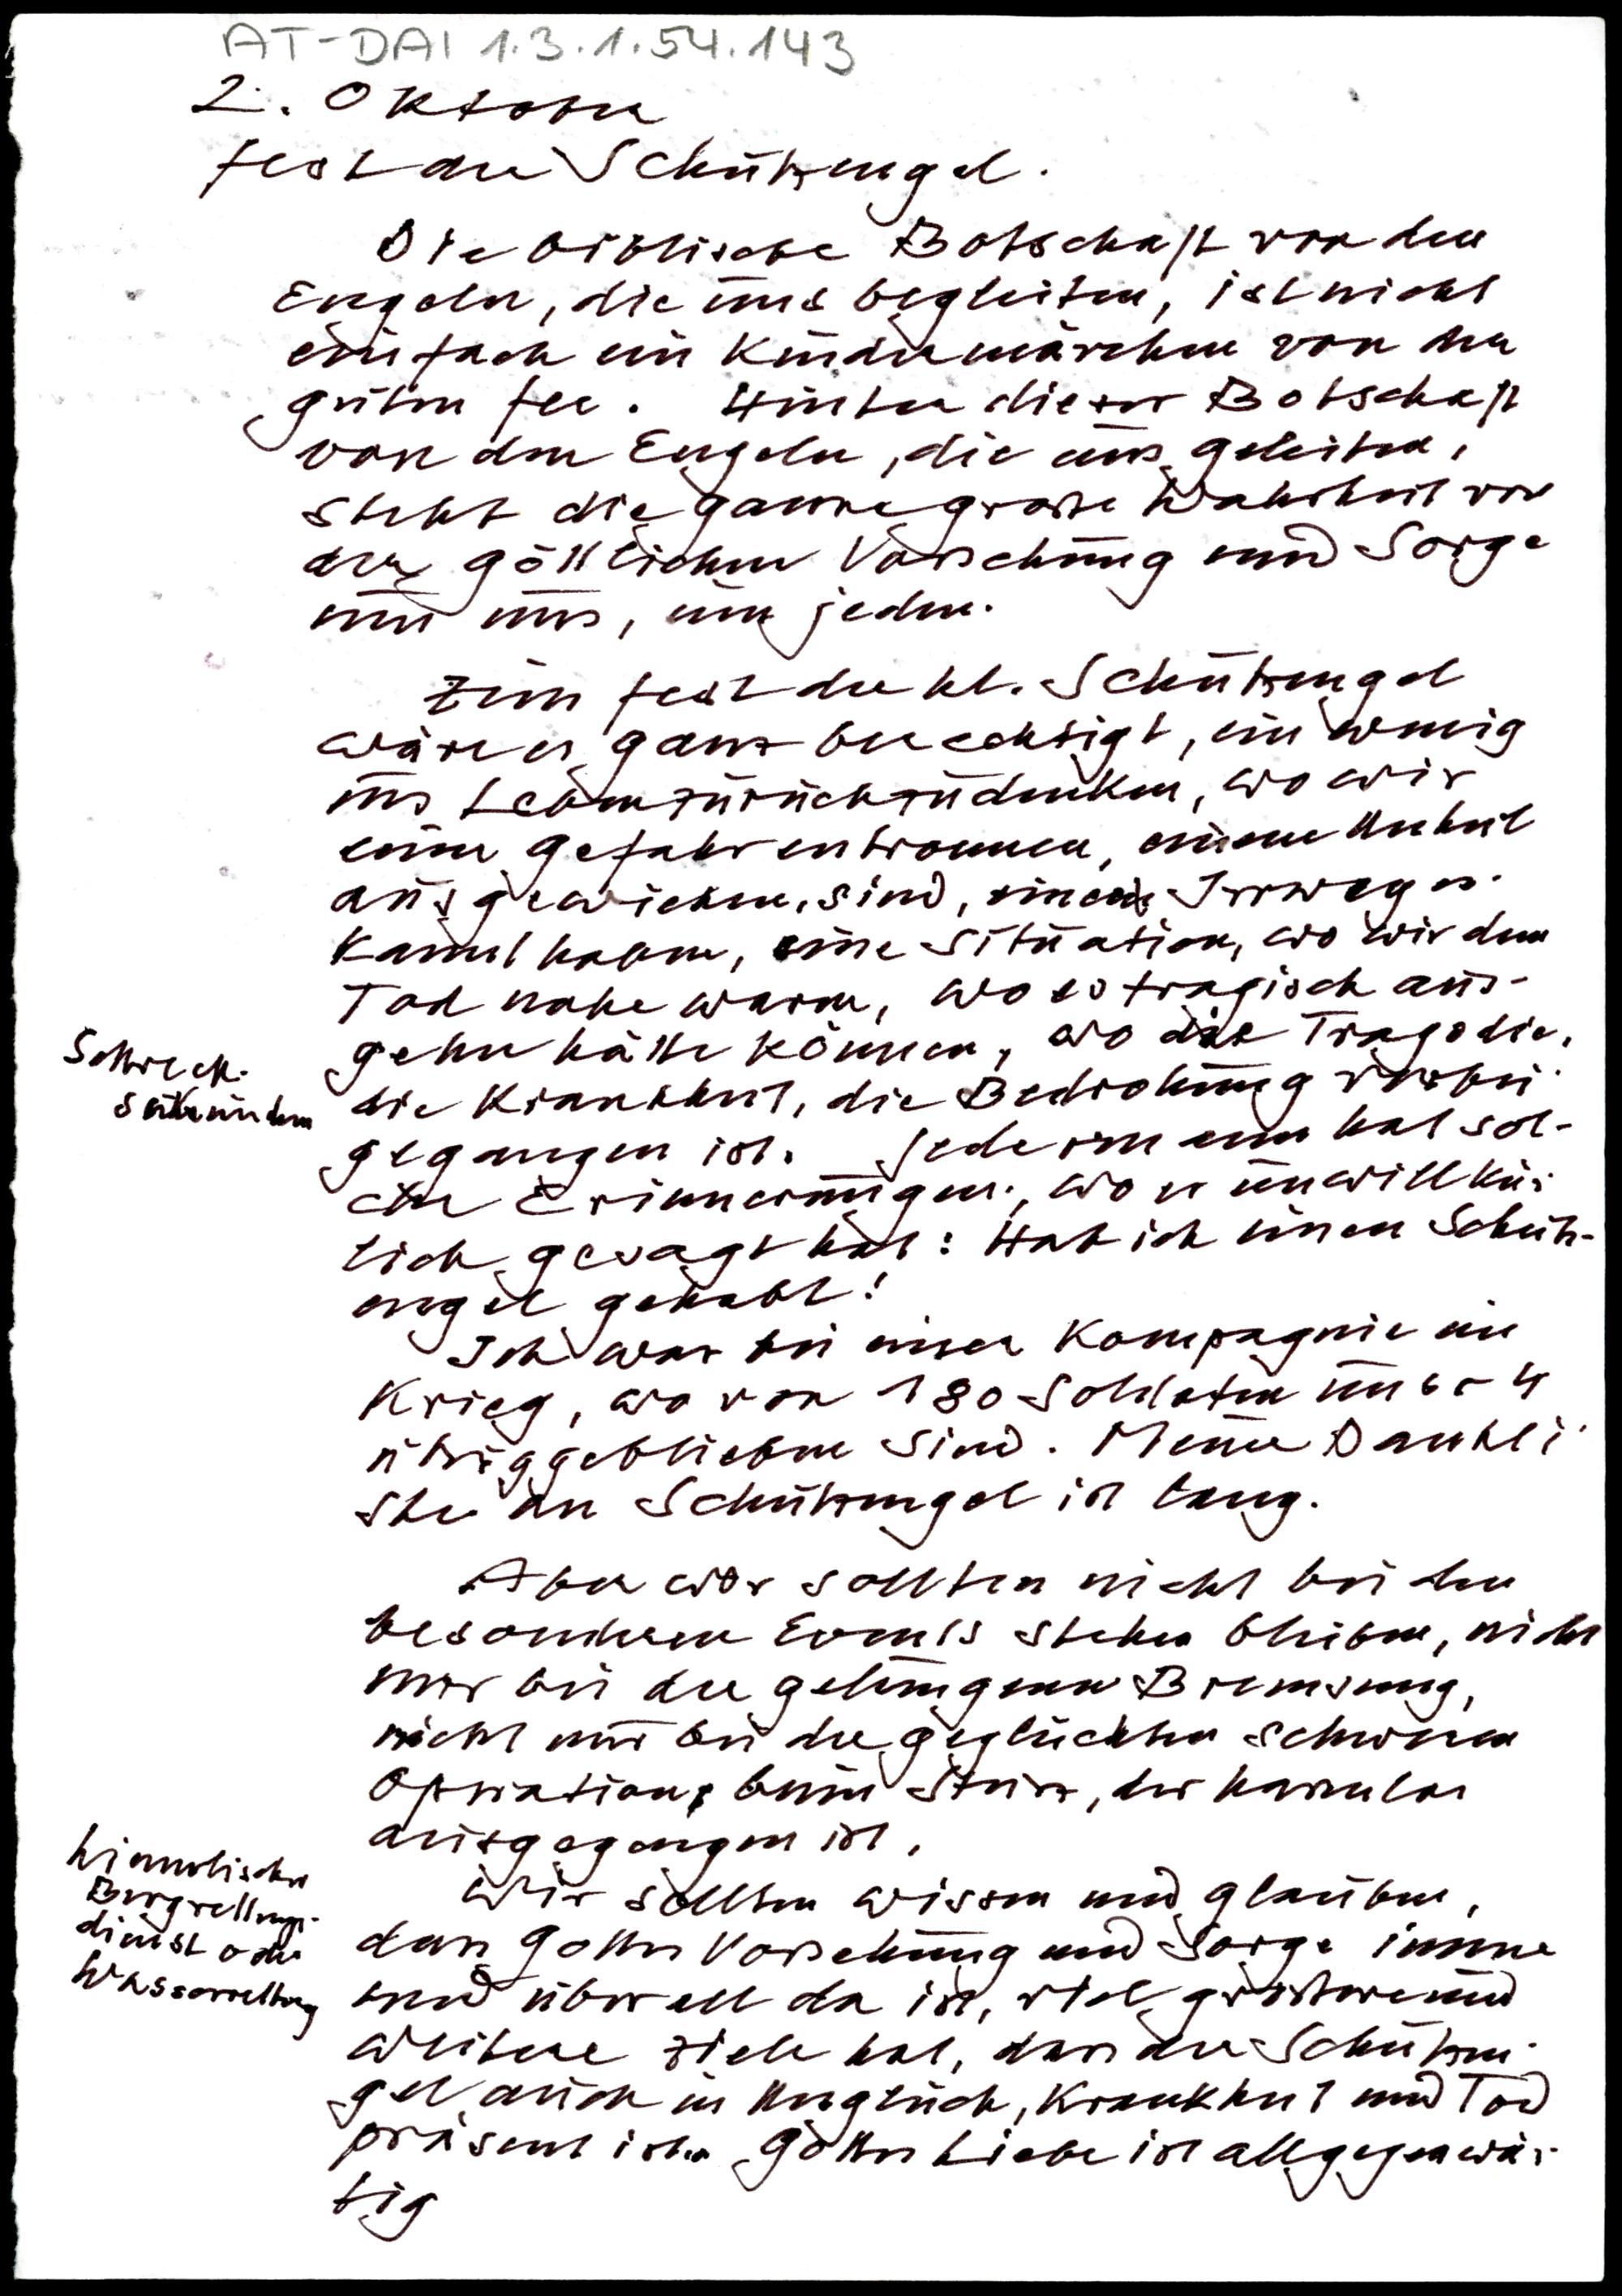 AT-DAI 1.3.1.54.143
2. Oktober
Fest der Schutzengel.
Die biblische Botschaft von den
Engeln, die uns begleiten, ist nicht
einfach ein Kindermärchen von der
guten Fee. Hinter dieser Botschaft
von den Engeln, die uns geleiten,
steht die ganze große Wahrheit von
der göttlichen Vorsehung und Sorge
um uns, um jeden.
Zum Fest der hl. Schutzengel
wäre es ganz berechtigt, ein wenig
ins Leben zurückzudenken, wo wir
einer Gefahr entronnen, einem Unheil
ausgewichen, sind, einen Irrweg er-
kannt haben, eine Situation, wo wir dem
Tod nahe waren, wo es tragisch aus-
gehen hätte können, wo die Tragödie,
Schreck-
sekunden
die Krankheit, die Bedrohung vorbei-
gegangen ist. Jedermann hat sol-
che Erinnerungen, wo er unwillkür-
lich gesagt hat: Hab ich einen Schutz-
engel gehabt!
Ich war bei einer Kompagnie im
Krieg, wo von 180 Soldaten nur 4
übriggeblieben sind. Meine Dankli-
ste an Schutzengel ist lang.
Aber wir sollten nicht bei den
besonderen Events stehen bleiben, nicht
nur bei der gelungenen Bremsung,
nicht nur bei der geglückten schweren
Operation, beim Sturz, der harmlos
ausgegangen ist.
himmlischer
Bergrettungs-
dienst oder
Wasserrettung
Wir sollten wissen und glauben,
dass Gottes Vorsehung und Sorge immer
und überall da ist, viel größere und
weitere Ziele hat, dass der Schutzen-
gel auch in Unglück, Krankheit und Tod
präsent ist. Gottes Liebe ist allgegenwär-
tig